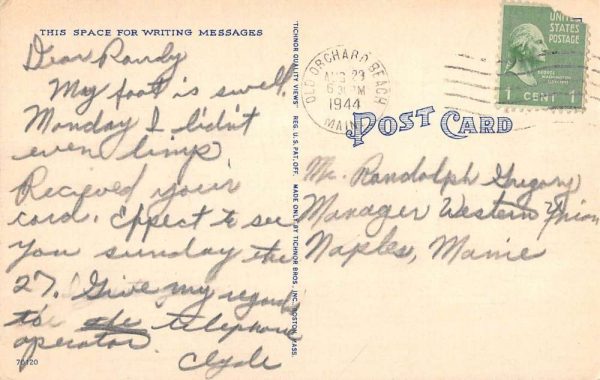 THIS SPACE FOR WRITING MESSAGES
Dear Randy
My foot is swell.
Monday I didn't
even limp.
Recieved your
card. Expect to see
you sunday the
27. Give my regards
to telephone
operator.
Clyde
70120
"TICHNOR QUALITY VIEWS" REG. U. S. PAT. OFF. MADE ONLY BY TICHNOR BROS., INC. BOSTON, MASS.
OLD ORCHARD BEACH
AUG 23
6 30 PM
1944
MAINE
UNITED
STATES
POSTAGE
GEORGE
WASHINGTON
1 CENT 1
POST CARD
Mr. Randolph Gregory
Manager Western Union
Naples, Maine